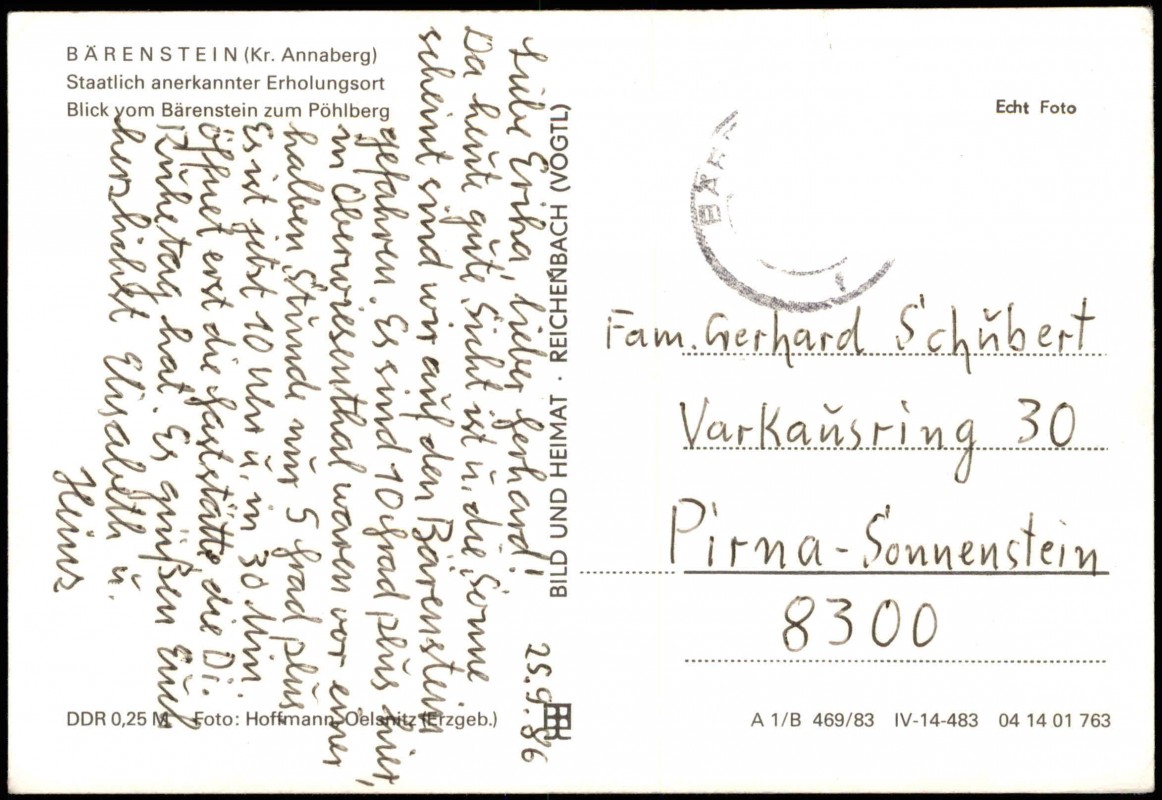 BÄRENSTEIN (Kr. Annaberg)
Staatlich anerkannter Erholungsort
Blick vom Bärenstein zum Pöhlberg
25.9.86
Liebe Erika, lieber Gerhard!
Da heute gute Sicht ist u. die Sonne
scheint sind wir auf den Bärenstein
gefahren. Es sind 10 Grad plus hier,
in Oberwiesenthal waren vor einer
halben Stunde nur 5 Grad plus
Es ist jetzt 10 Uhr u. in 30 Min
öffnet erst die Gaststätte, die Di.
Ruhetag hat. Es grüßen Euch
herzlichst Elisabeth u.
Heinz
DDR 0,25 M Foto: Hoffmann, Oelsnitz (Erzgeb.)
BILD UND HEIMAT · REICHENBACH (VOGTL)
Echt Foto
BÄR
Fam. Gerhard Schubert
Varkausring 30
Pirna-Sonnenstein
8300
A 1/B 469/83 IV-14-483 04 14 01 763